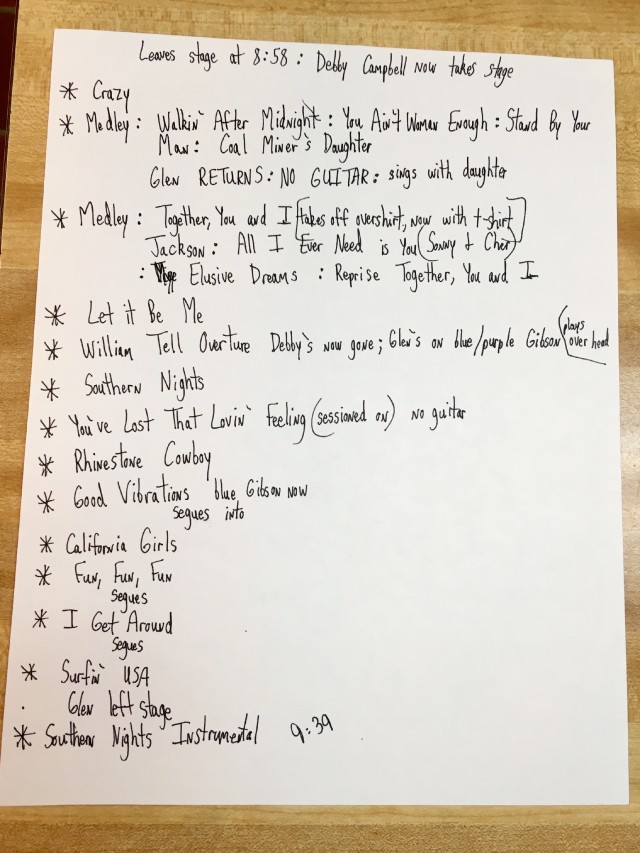 Leaves stage at 8:58 : Debby Campbell now takes stage
* Crazy
* Medley : Walkin' After Midnight : You Ain't Woman Enough : Stand By Your
Man : Coal Miner's Daughter
Glen RETURNS : NO GUITAR : sings with daughter
* Medley : Together, You and I [takes off overshirt, now with t-shirt]
Jackson : All I Ever Need is You (Sonny & Cher)
: Elusive Dreams : Reprise Together, You and I
* Let it Be Me
* William Tell Overture Debby's now gone; Glen's on blue/purple Gibson (plays over head
* Southern Nights
* You've Lost That Lovin' Feeling (sessioned on) no guitar
* Rhinestone Cowboy
* Good Vibrations blue Gibson now
segues into
* California Girls
* Fun, Fun, Fun
segues
* I Get Around
segues
* Surfin' USA
. Glen left stage
* Southern Nights Instrumental 9:39